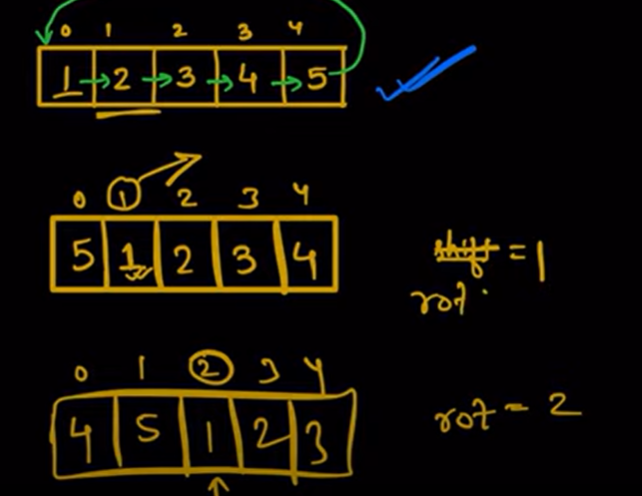 0 1 2 3 4
1 2 3 4 5
0 1 2 3 4
5 1 2 3 4
shift = 1
rot.
0 1 2 3 4
4 5 1 2 3
rot = 2